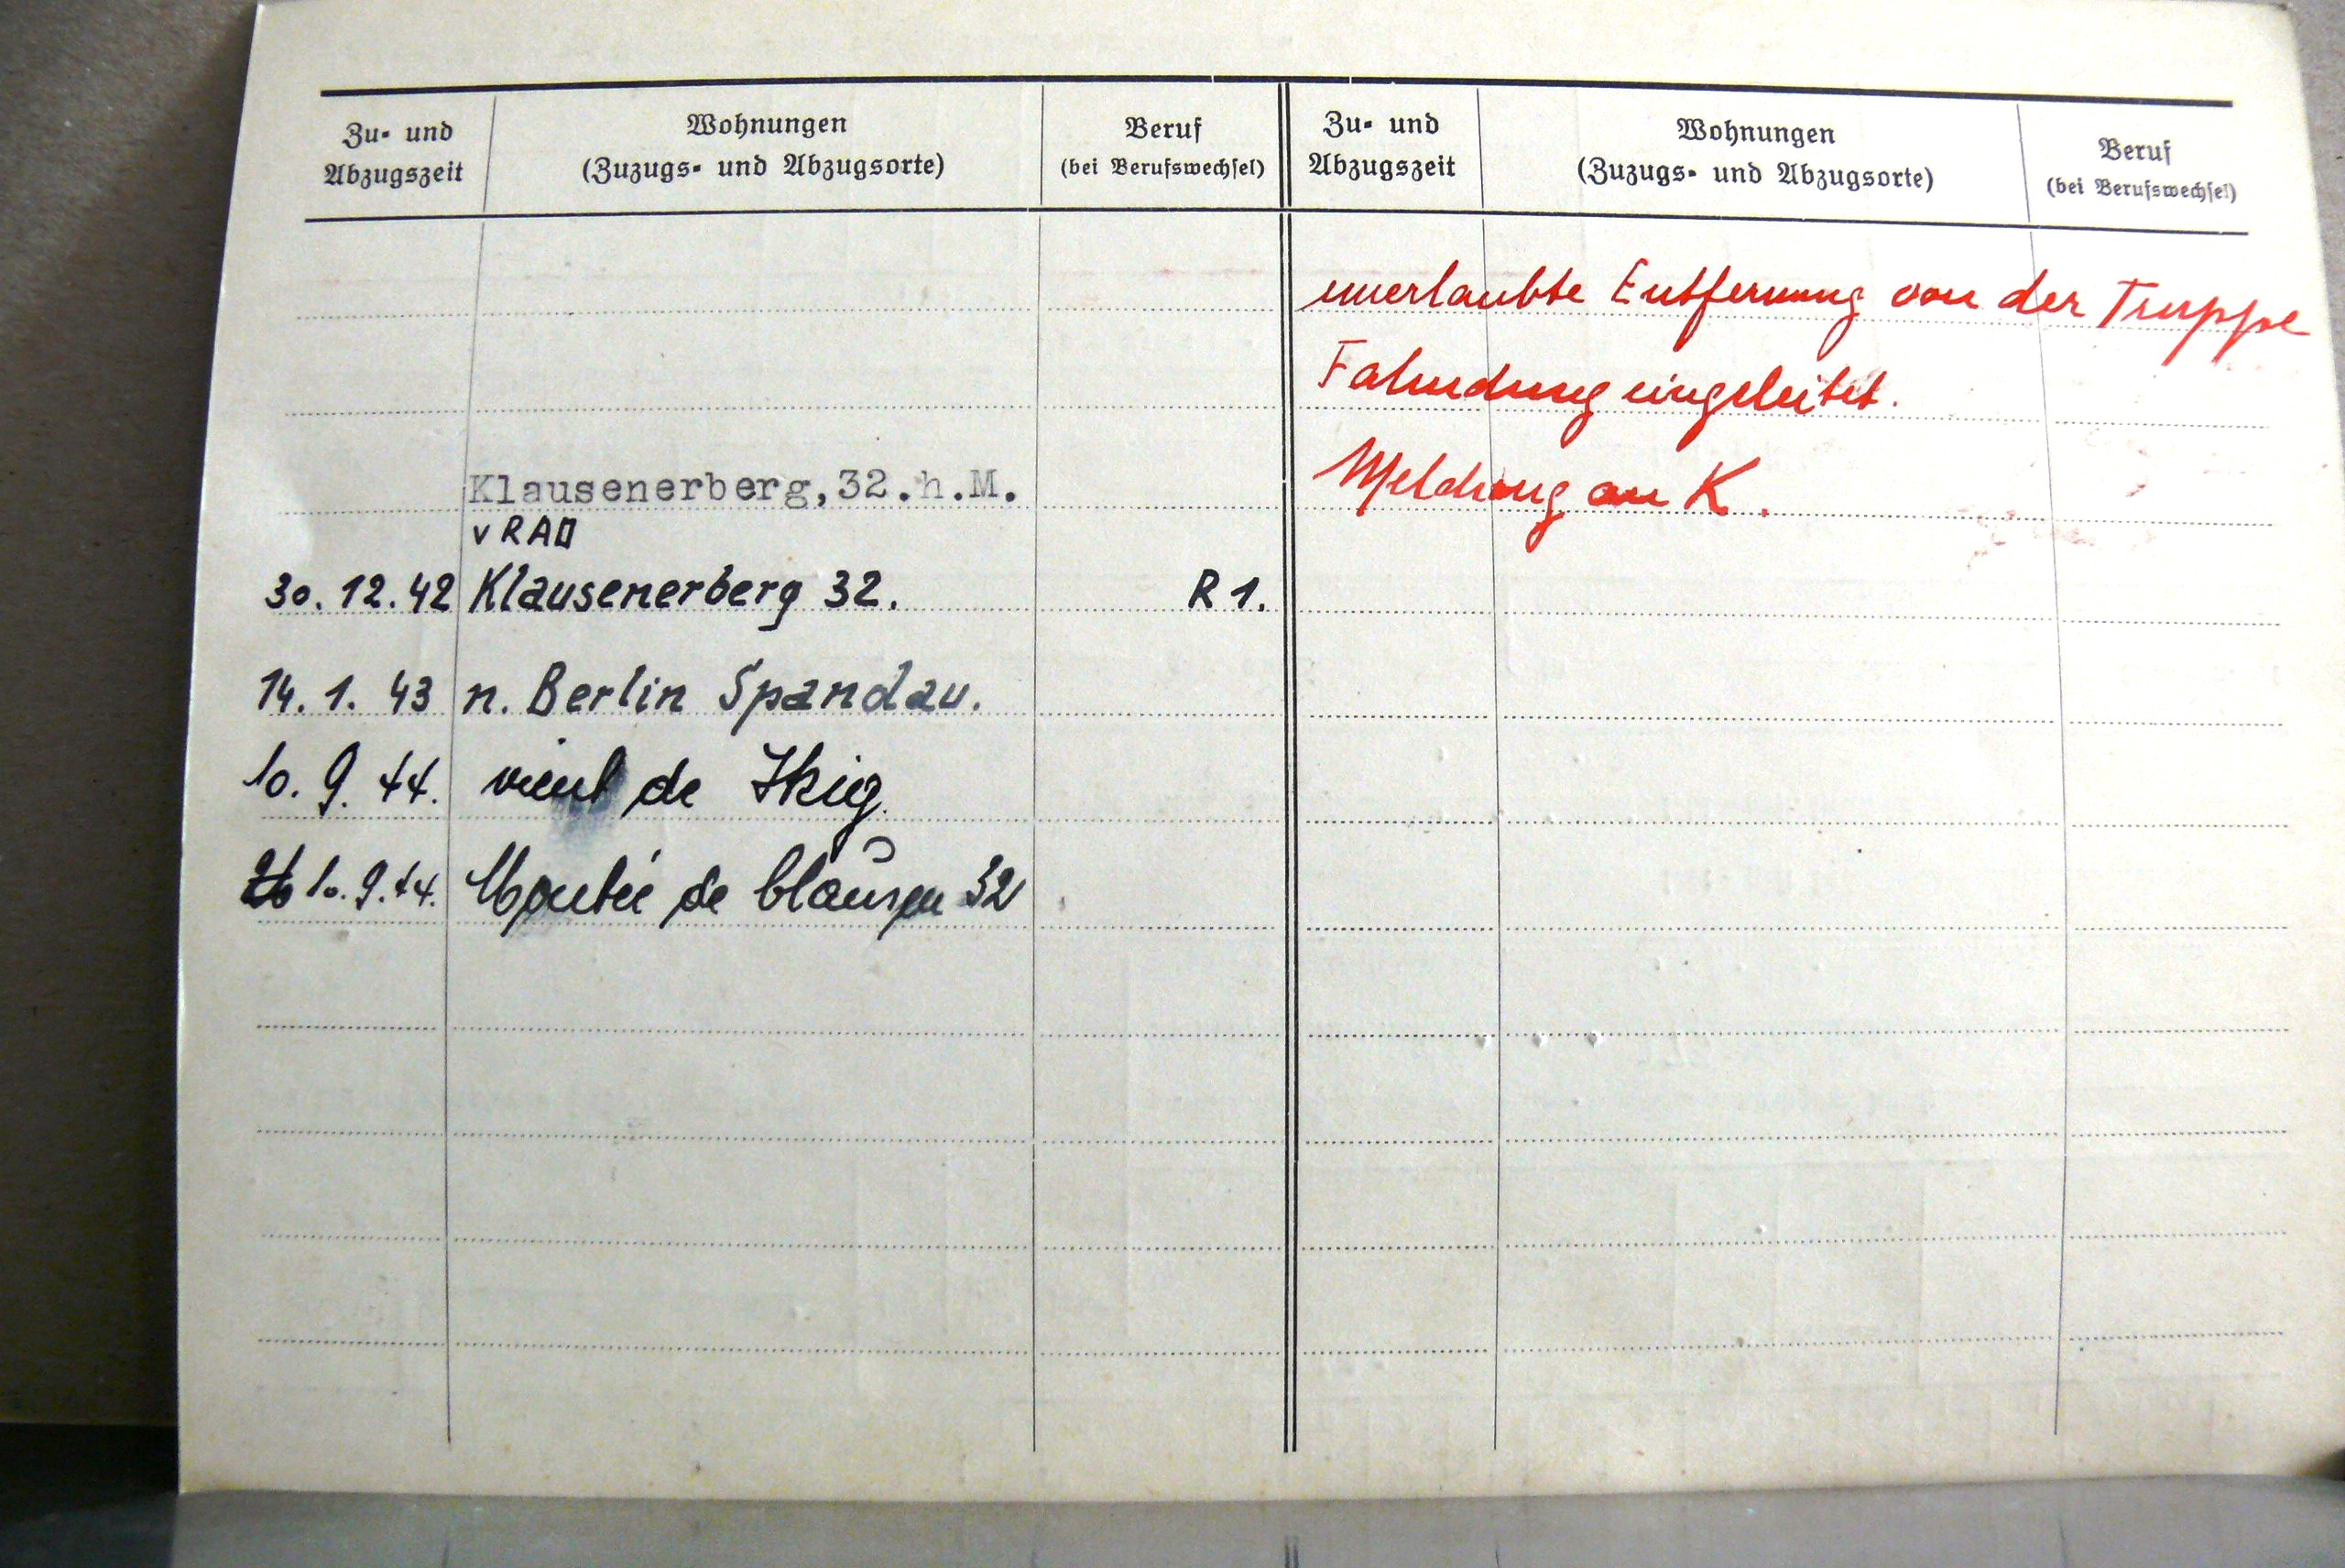 Zu- und Abzugszeit
Wohnungen (Zuzugs- und Abzugsorte)
Beruf (bei Berufswechsel)
Zu- und Abzugszeit
Wohnungen (Zuzugs- und Abzugsorte)
Beruf (bei Berufswechsel)
Klausenerberg,32.h.M.
v RAD
30.12.42 Klausenerberg 32. R 1.
14.1.43 n. Berlin Spandau.
10.9.44. vient de
10.9.44. Montée de Clausen 32
unerlaubte Entfernung von der Truppe
Fahndung eingeleitet.
Meldung an K.